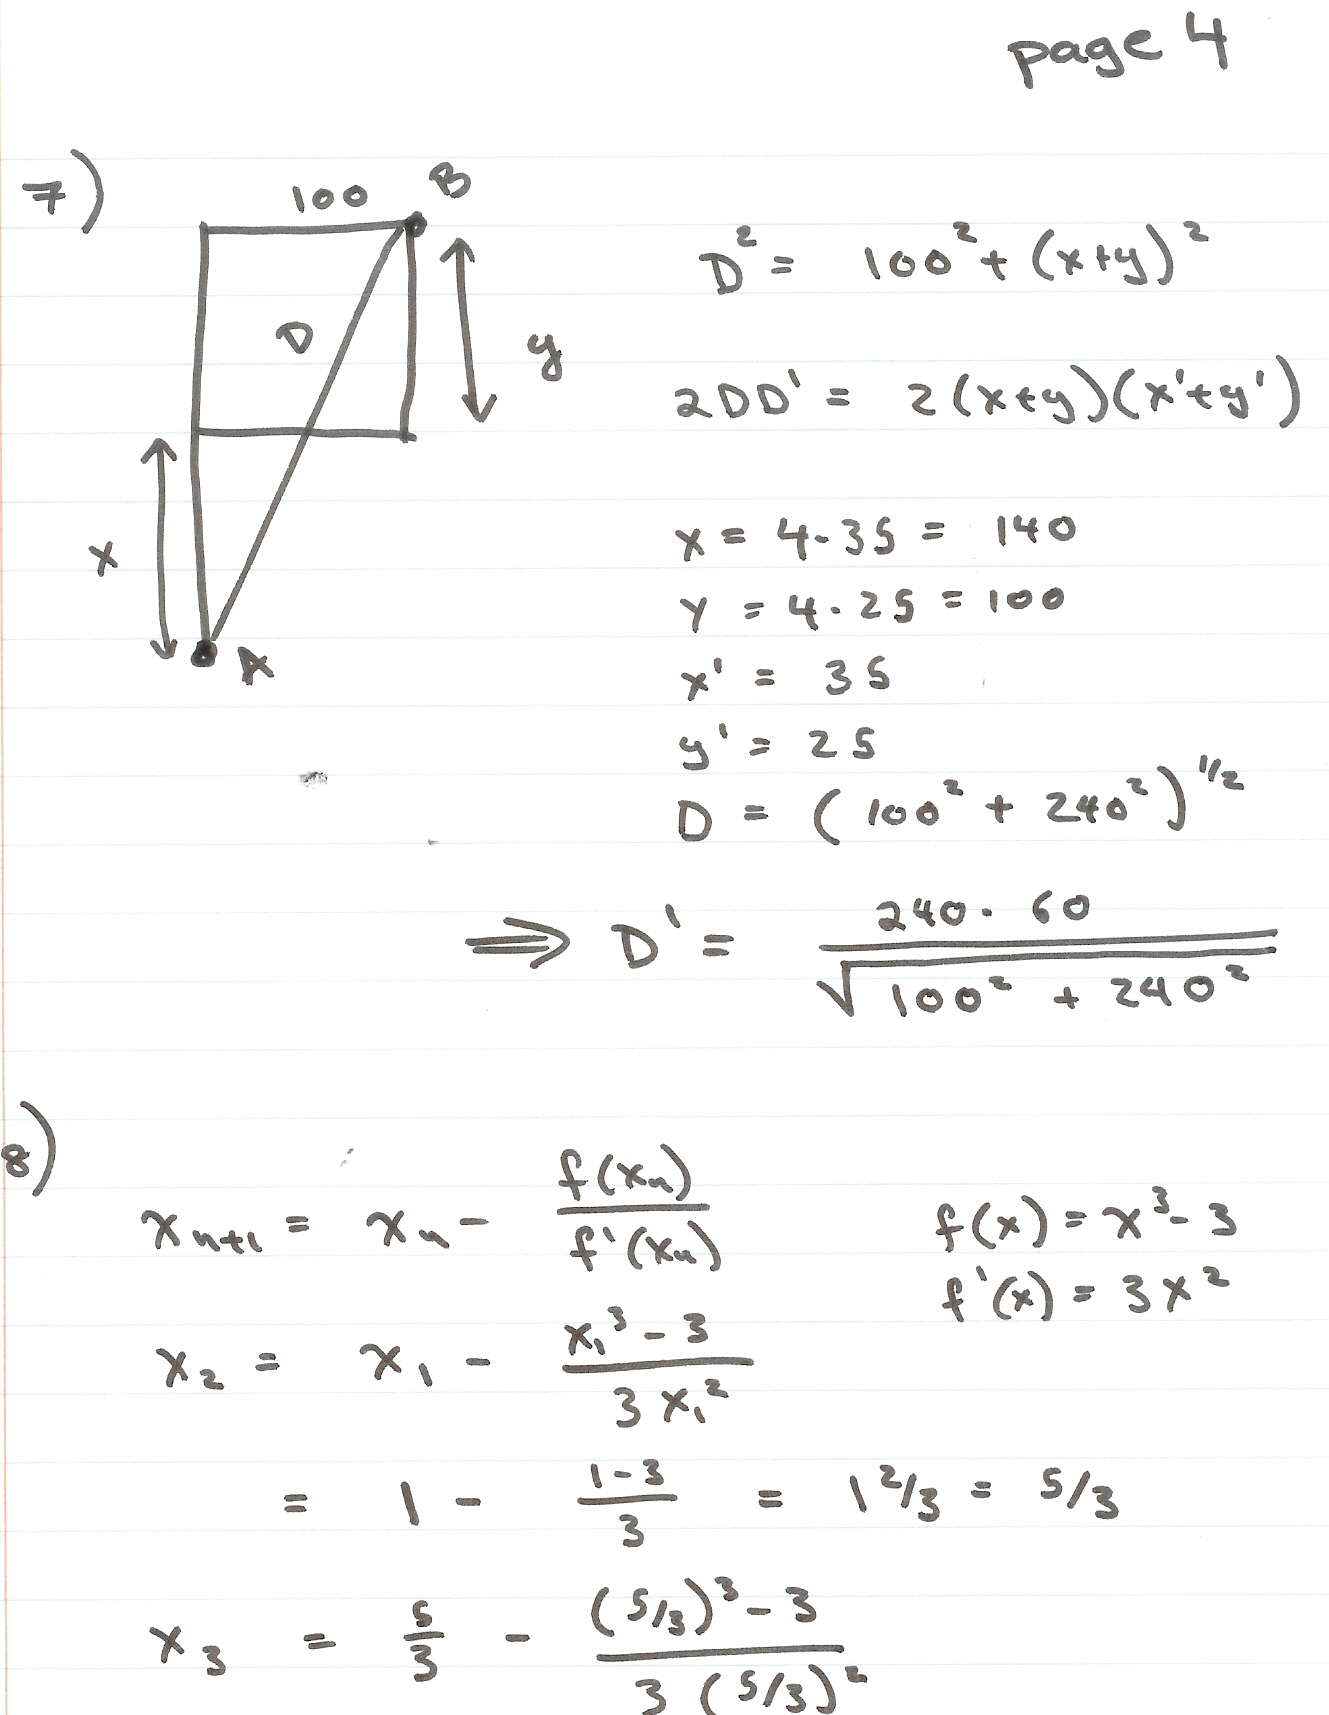 page 4
7)
100 B
D² = 100² + (x+y)²
D
y
2DD' = 2(x+y)(x'+y')
x = 4·35 = 140
x
y = 4·25 = 100
A
x' = 35
y' = 25
D = (100² + 240²)^1/2
⇒ D' = 240·60 / √(100² + 240²)
8)
xₙ₊₁ = xₙ - f(xₙ) / f'(xₙ)
f(x) = x³ - 3
f'(x) = 3x²
x₂ = x₁ - (x₁³ - 3) / (3x₁²)
= 1 - (1-3) / 3 = 1 2/3 = 5/3
x₃ = 5/3 - ((5/3)³ - 3) / (3(5/3)²)